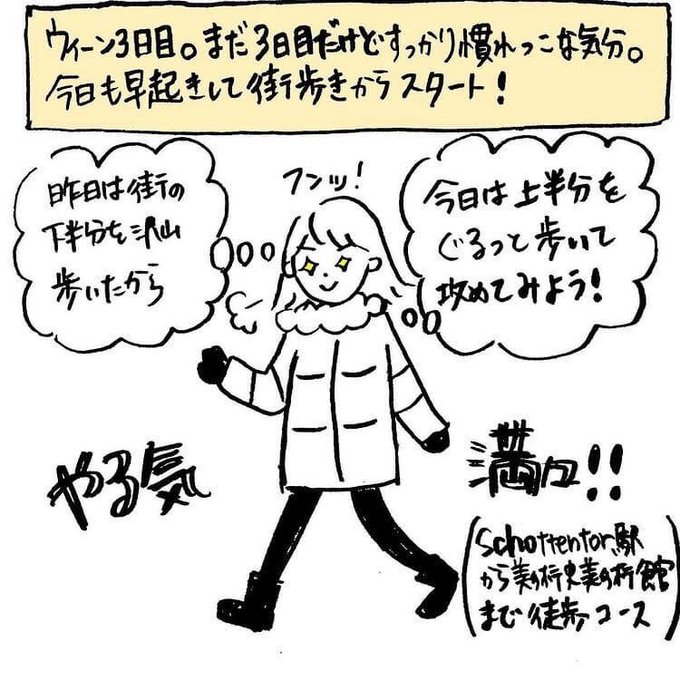 ウィーン3日目。まだ3日目だけどすっかり慣れっこな気分。
今日も早起きして街歩きからスタート!
昨日は街の
下半分を沢山
歩いたから
フンッ!
今日は上半分を
ぐるっと歩いて
攻めてみよう!
やる気
満々!!
(Schottentor駅
から美術史美術館
まで徒歩コース)